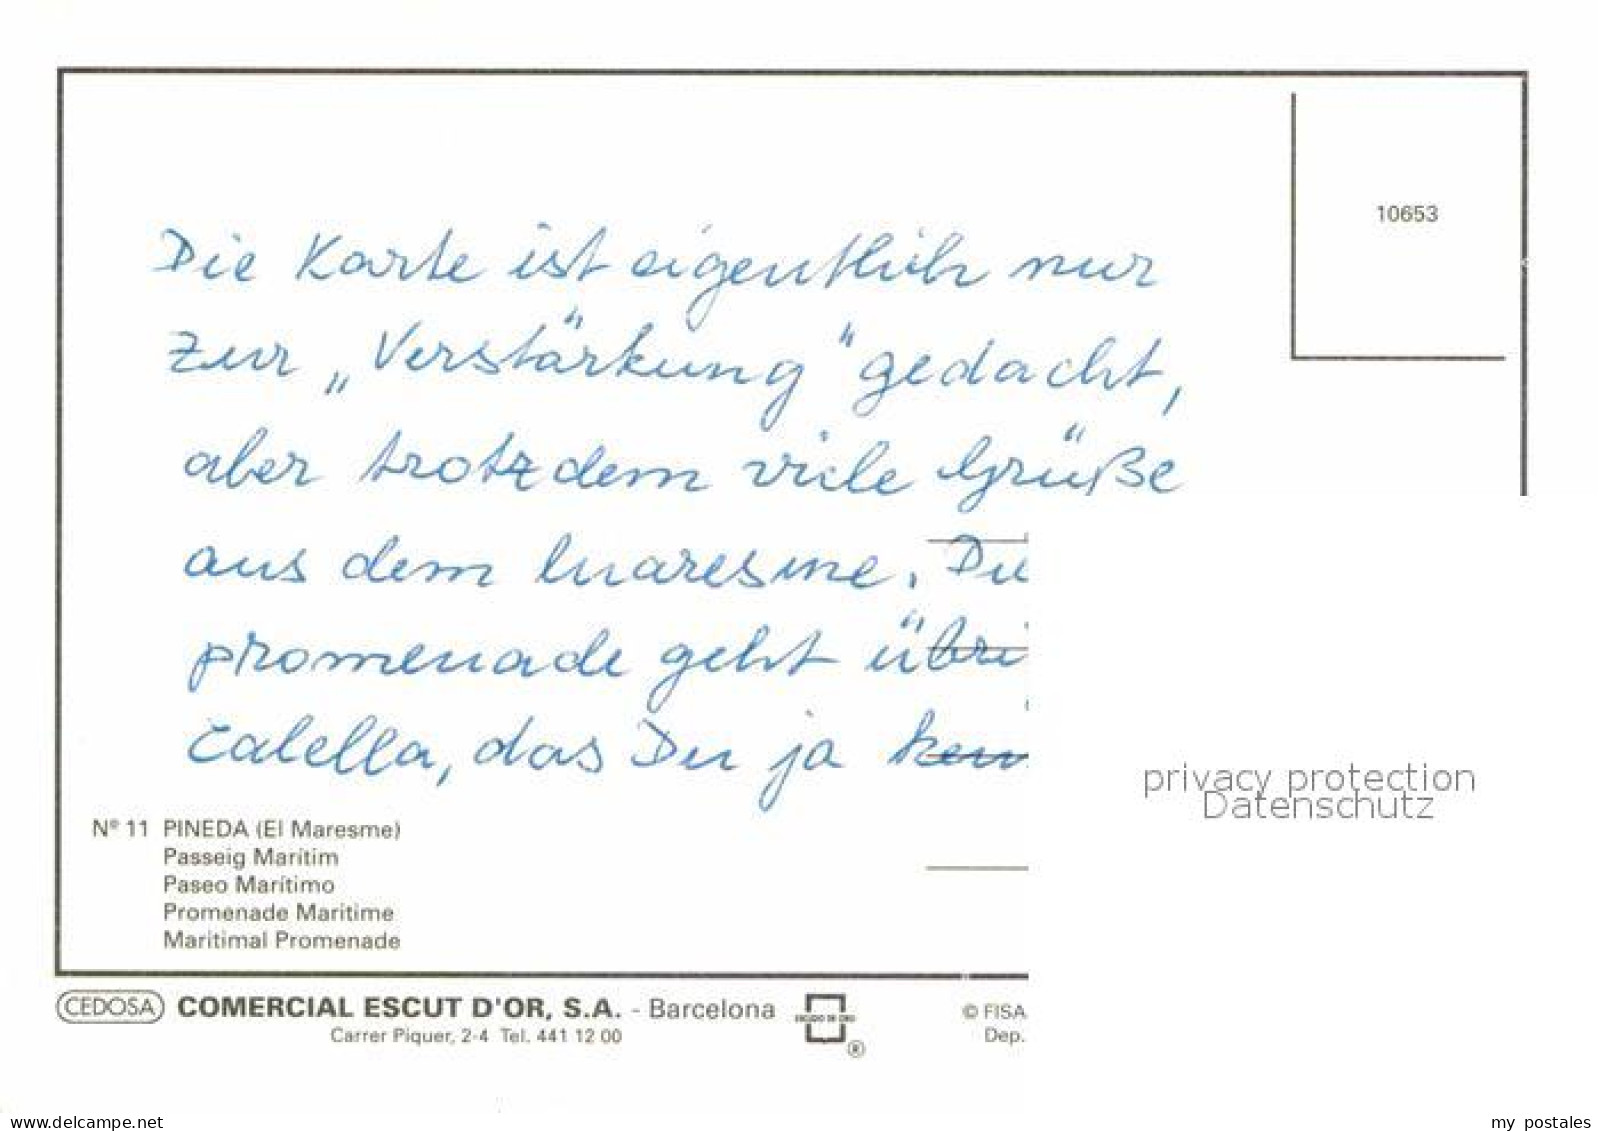 10653
Die Karte ist eigentlich nur
zur „Verstärkung" gedacht,
aber trotzdem viele Grüße
aus dem Maresme. Die
promenade geht übri
Calella, das Du ja kenn
privacy protection
Datenschutz
Nº 11 PINEDA (El Maresme)
Passeig Marítim
Paseo Marítimo
Promenade Maritime
Maritimal Promenade
CEDOSA COMERCIAL ESCUT D'OR, S.A. - Barcelona
ESCUDO DE ORO ®
Carrer Piquer, 2-4 Tel. 441 12 00
© FISA
Dep.
www.delcampe.net
my postales